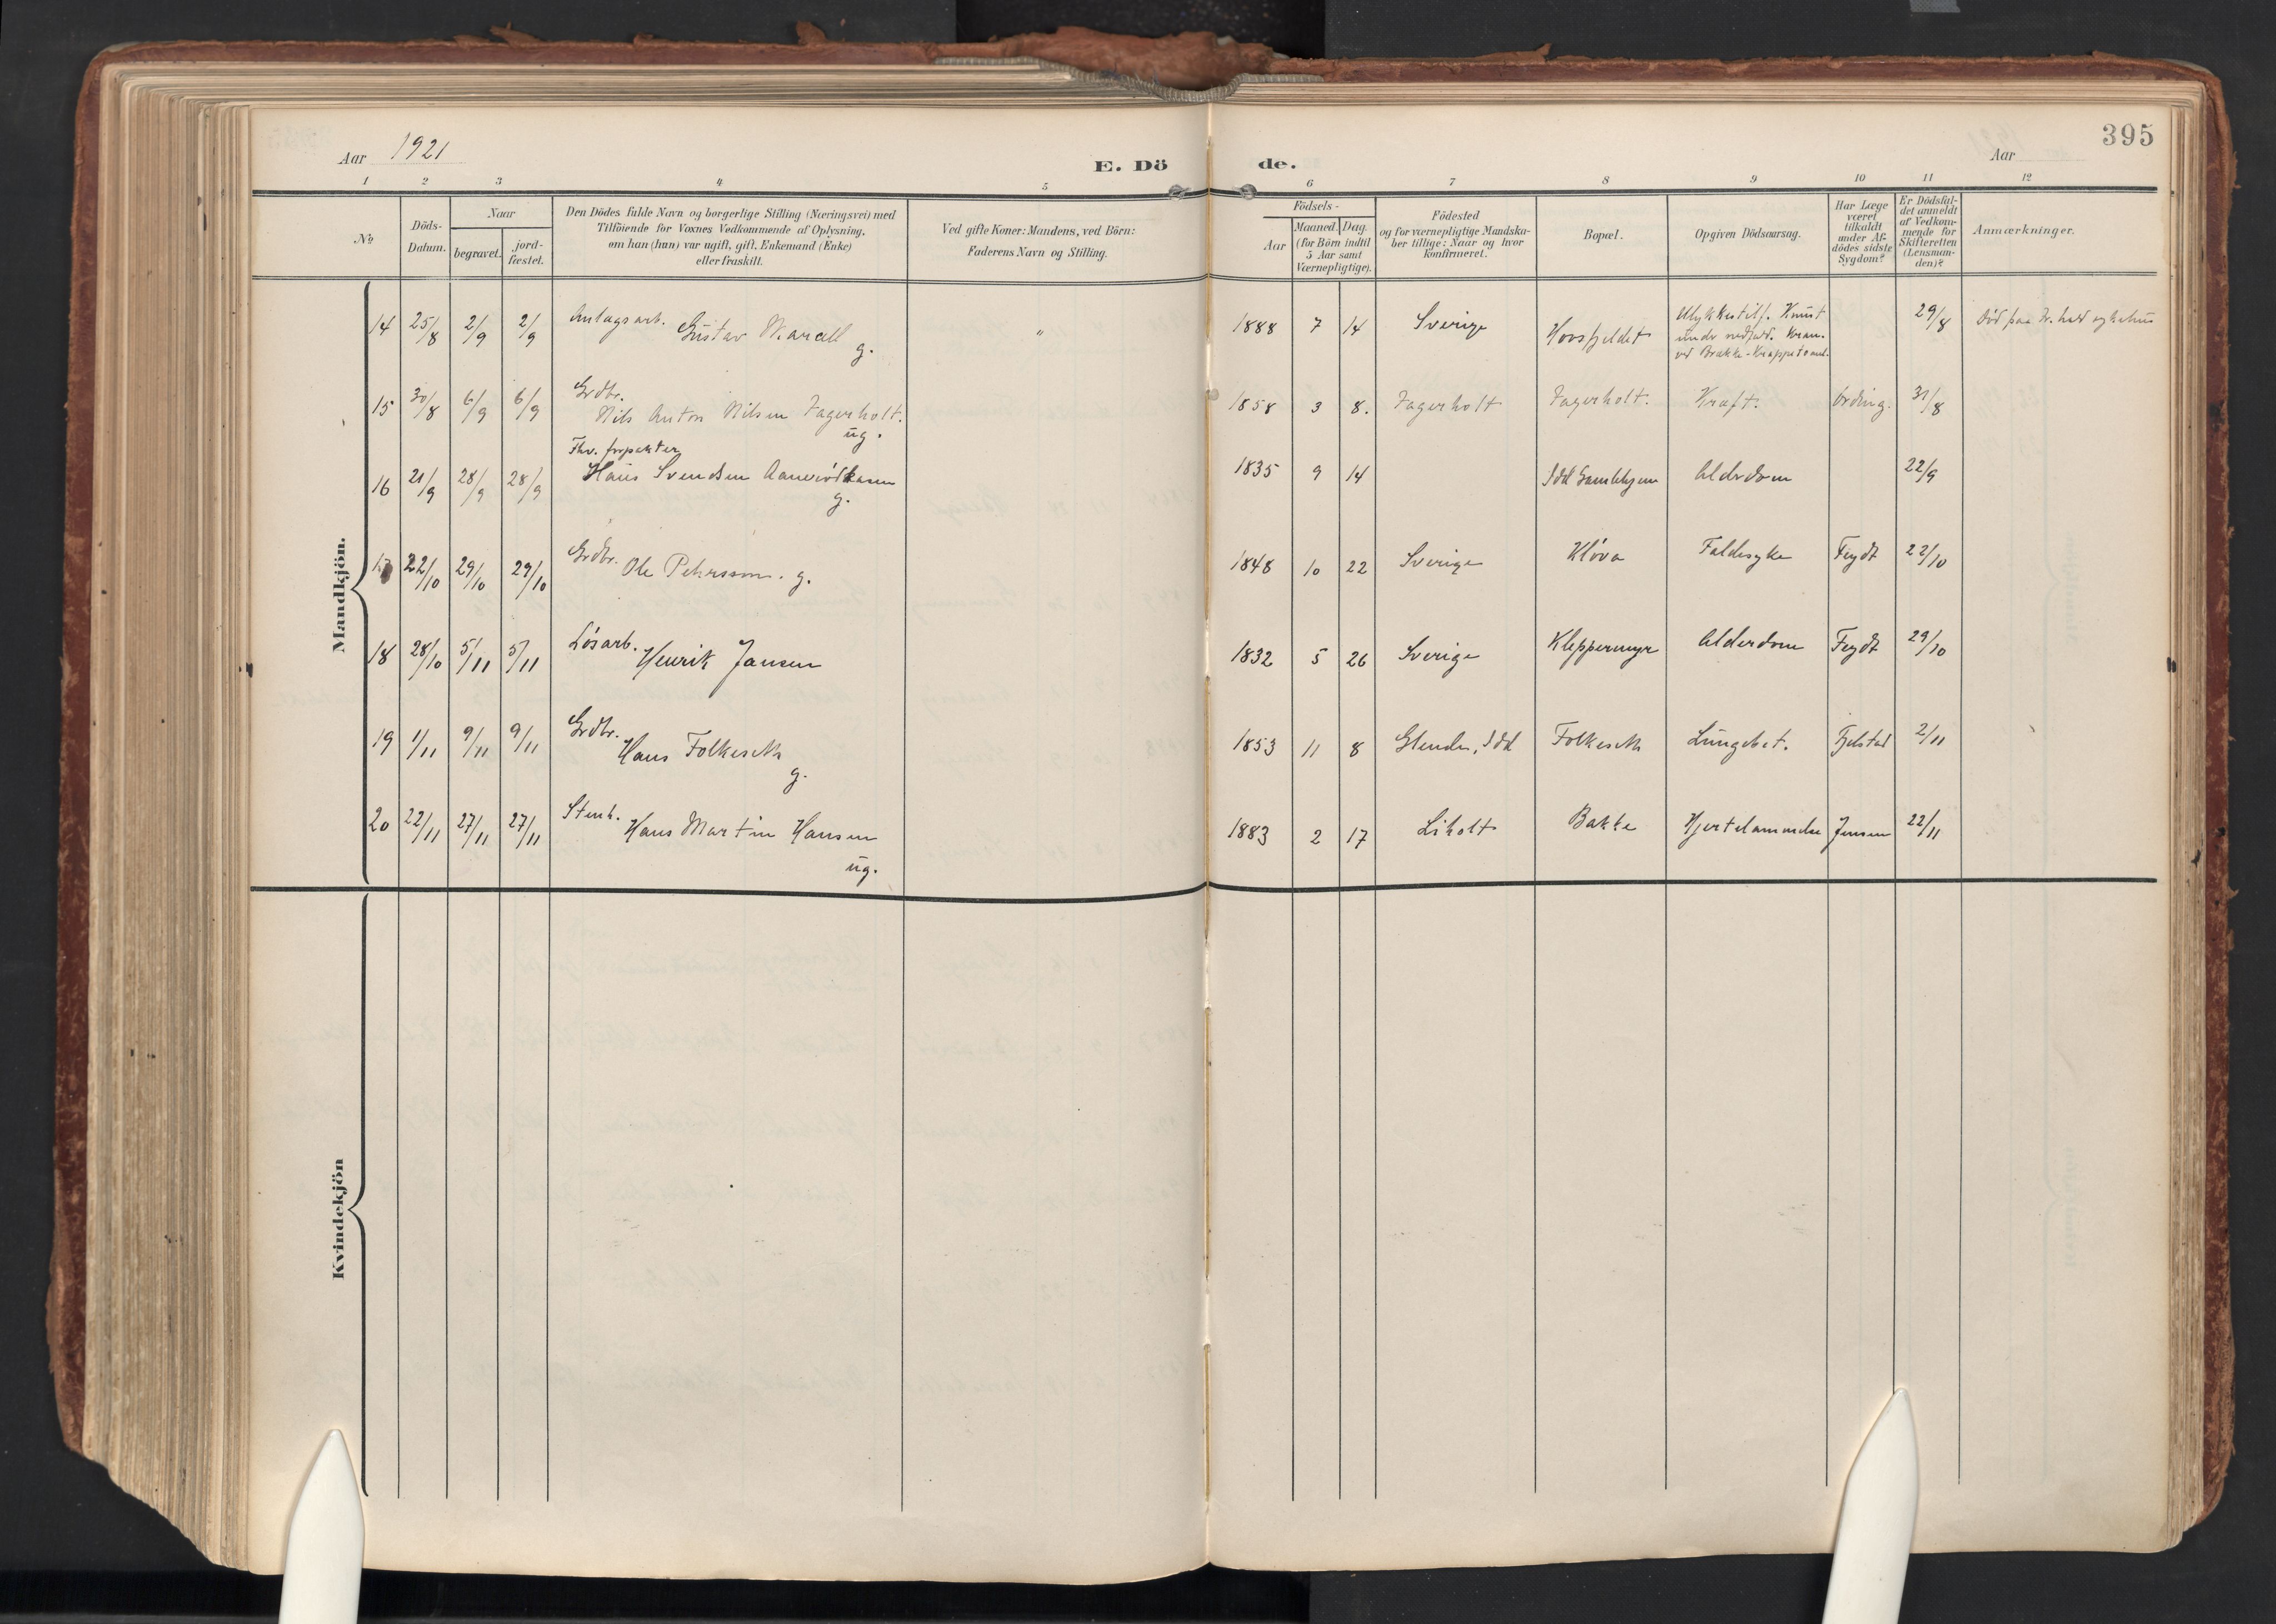 395
Aar 1921
E. Dö de.
Aar
1 2 3 4 5 6 7 8 9 10 11 12
No
Döds-Datum.
Naar
begravet.
jord-fæstet.
Den Dödes fulde Navn og borgerlige Stilling (Næringsvei) med
Tilföiende for Voxnes Vedkommende af Oplysning.
om han (hun) var ugift, gift. Enkemand (Enke)
eller fraskilt.
Ved gifte Koner: Mandens, ved Börn:
Faderens Navn og Stilling.
Födsels-
Aar
Maaned. Dag.
(for Börn indtil
5 Aar samt
Værnepligtige).
Födested
og for værnepligtige Mandska-
ber tillige: Naar og hvor
konfirmeret.
Bopæl.
Opgiven Dödsaarsag.
Har Læge
været
tilkaldt
under Af-
dödes sidste
Sygdom?
Er Dödsfal-
det anmeldt
af Vedkom-
mende for
Skifteretten
(Lensman-
den)?
Anmærkninger.
Mandkjön.
14 25/8 2/9 2/9 Anlagsarb. Gustav g. " 1888 7 14 Sverige Hovsfjeldet
Ulykkestilf. Knust
under
ved Brække-
29/8 Död paa Fr.hald sykehus
15 30/8 6/9 6/9 Grdbr.
Nils Anton Nilsen Fagerholt.
ug. 1858 3 8. Fagerholt Fagerholt. Kræft. Ording. 31/8
16 21/9 28/9 28/9 Fhv.
Hans Svendsen
g. 1835 9 14 Idd Gamlehjem Alderdom 22/9
17 22/10 29/10 29/10 Grdbr. Ole Pehrsson. g. 1848 10 22 Sverige Klöva Faldesyke Feydt 22/10
18 28/10 5/11 5/11 Lösarb. Henrik Jansen 1832 5 26 Sverige Kleppermyr Alderdom Feydt 29/10
19 1/11 9/11 9/11 Grdbr.
Hans Folkeseth
g. 1853 11 8 Glende, Idd Folkeseth Lungebet. Fjelstad 2/11
20 22/11 27/11 27/11 Stenh. Hans Martin Hansen
ug. 1883 2 17 Liholt Bakke Hjertelammelse Jensen 22/11
Kvindekjön